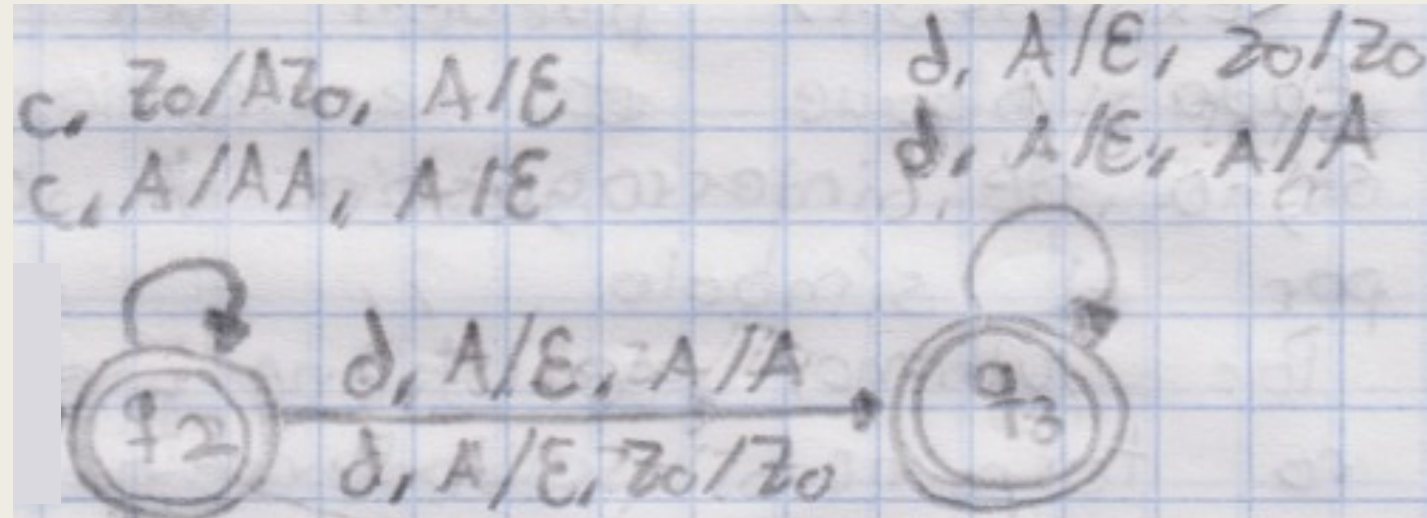 c, Z0/AZ0, A/ε
c, A/AA, A/ε
d, A/ε, Z0/Z0
d, A/ε, A/A
d, A/ε, A/A
d, A/ε, Z0/Z0
q2
q3